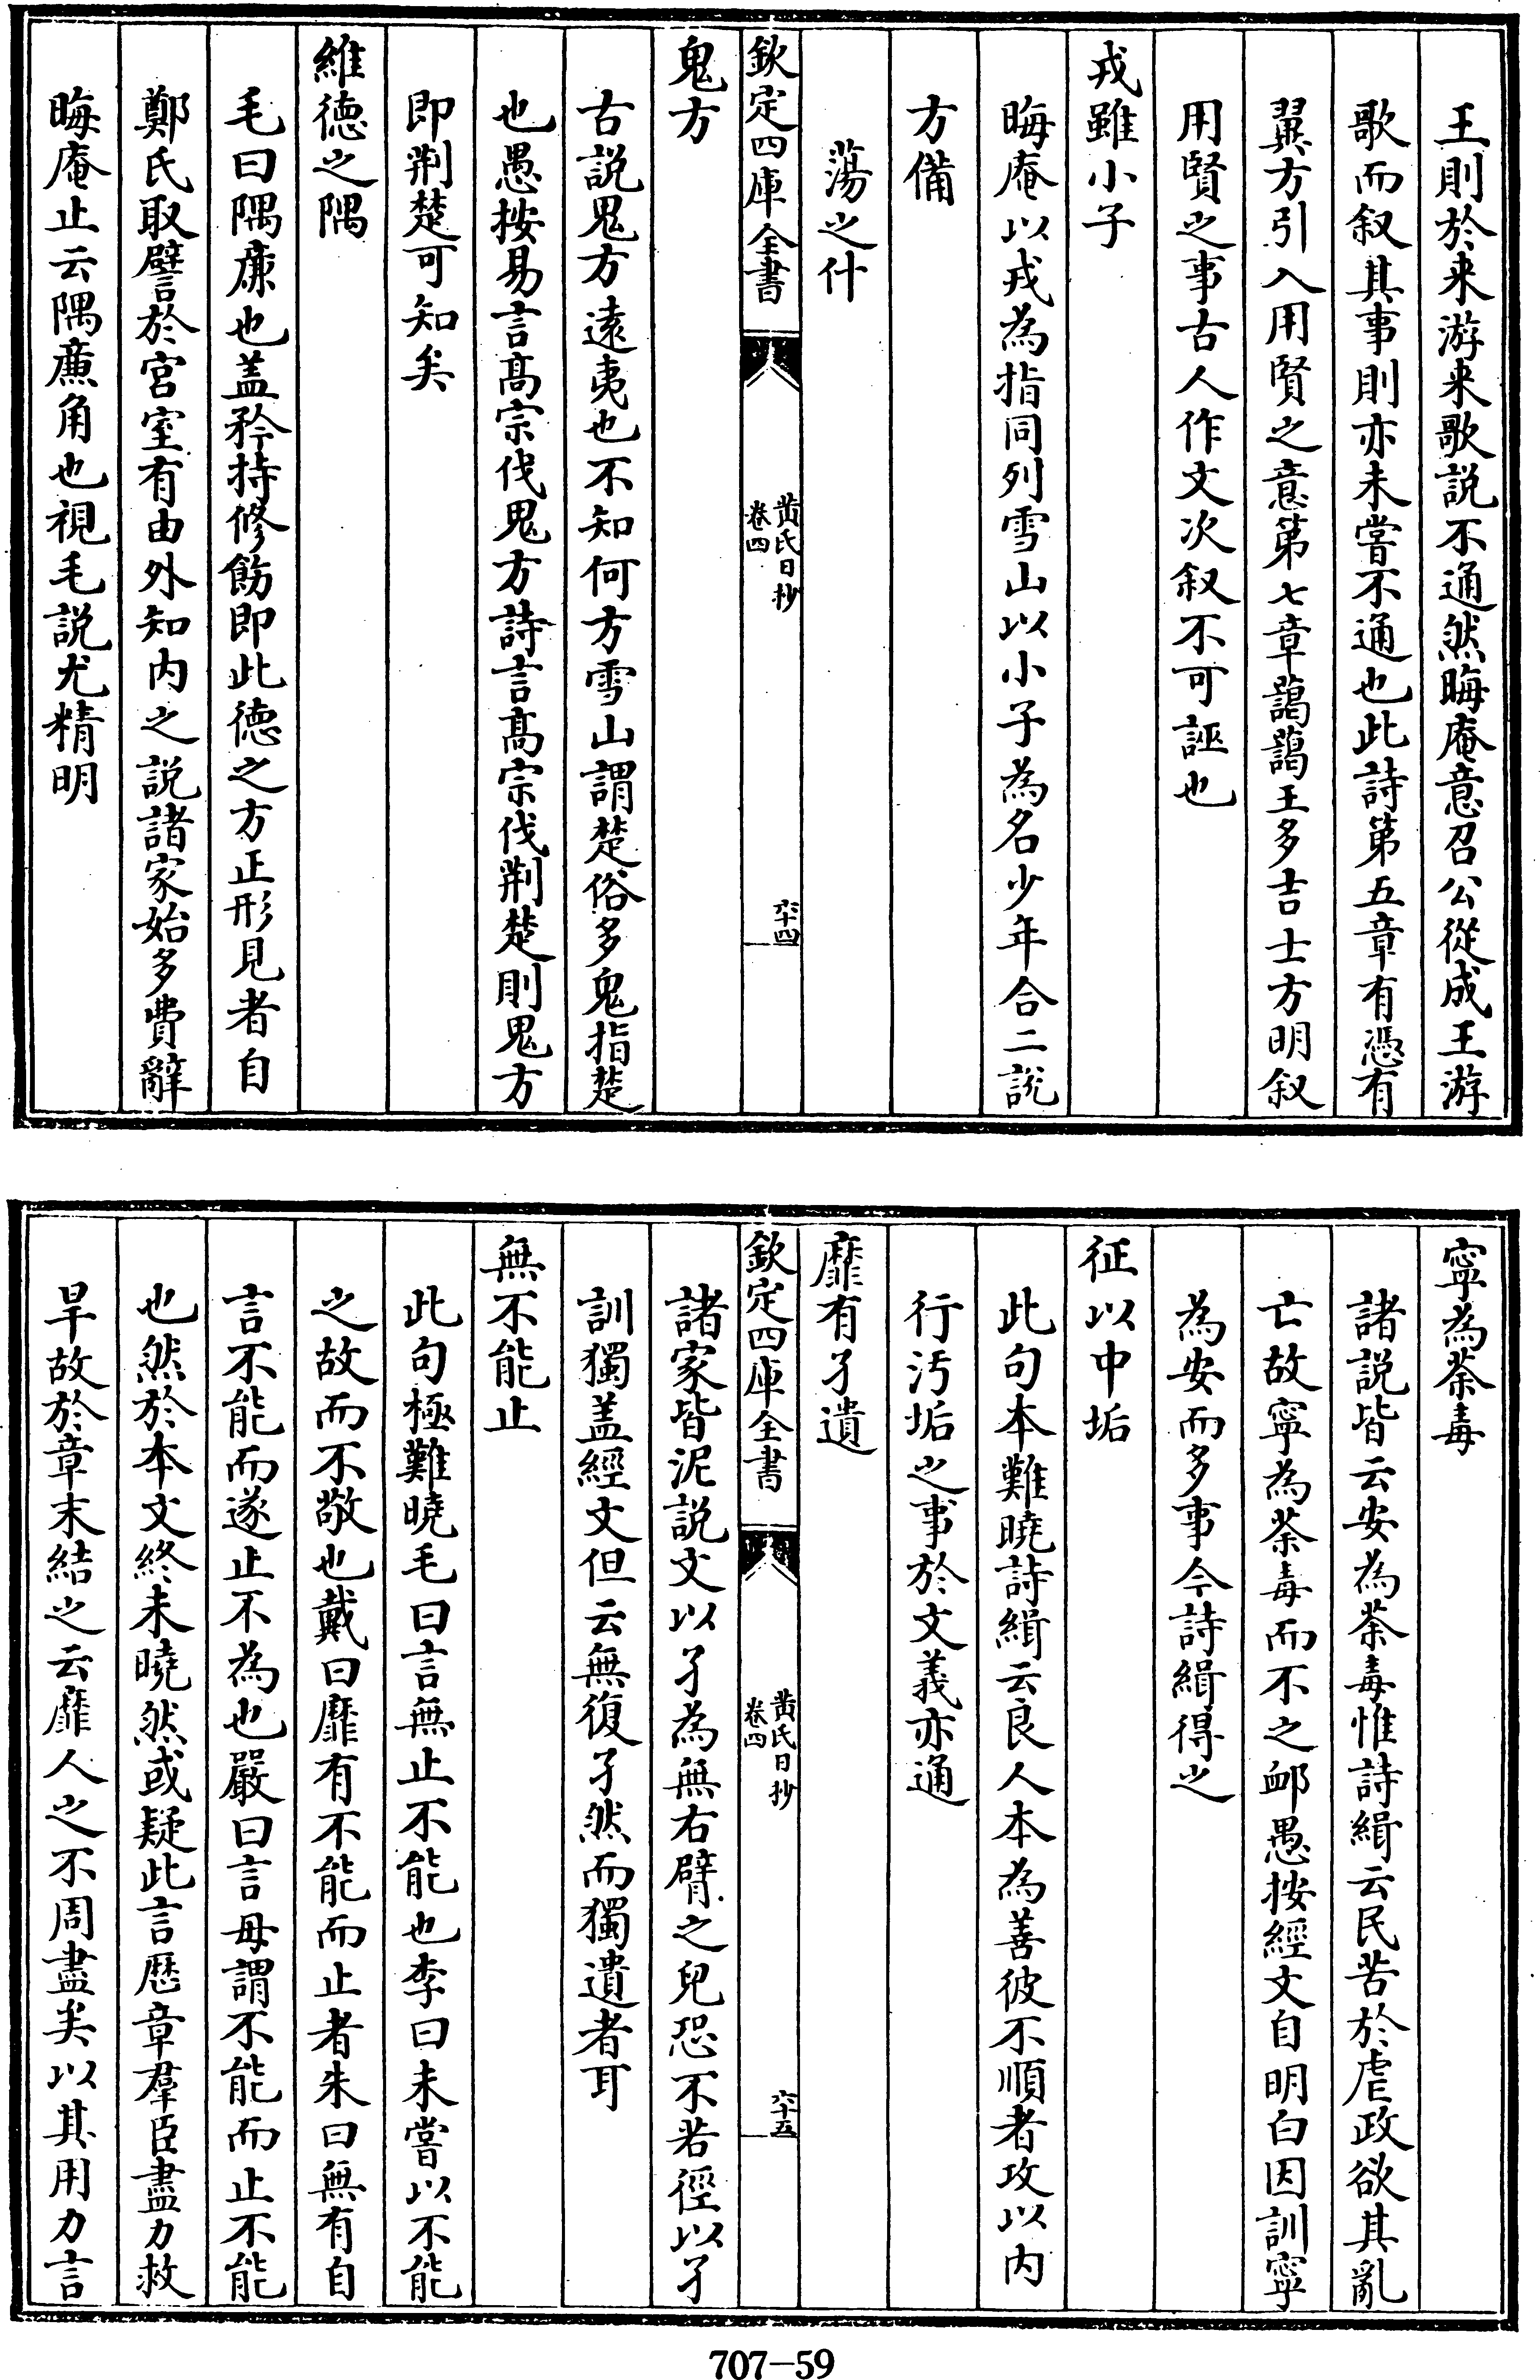 王則於来游来歌説不通然晦庵意召公從成王游
歌而叙其事則亦未嘗不通也此詩第五章有憑有
翼方引入用賢之意第七章藹藹王多吉士方明叙
用賢之事古人作文次叙不可誣也
戎雖小子
晦庵以戎為指同列雪山以小子為名少年合二説
方備
蕩之什
欽定四庫全書
黄氏日抄
卷四
六十四
鬼方
古説鬼方遠夷也不知何方雪山謂楚俗多鬼指楚
也愚按易言髙宗伐鬼方詩言髙宗伐荆楚則鬼方
即荆楚可知矣
維徳之隅
毛曰隅廉也盖矜持修飭即此徳之方正形見者自
鄭氏取譬於宫室有由外知内之説諸家始多費辭
晦庵止云隅廉角也視毛説尤精明
寧為荼毒
諸説皆云安為荼毒惟詩緝云民苦於虐政欲其亂
亡故寧為荼毒而不之䘏愚按經文自明白因訓寧
為安而多事今詩緝得之
征以中垢
此句本難曉詩緝云良人本為善彼不順者攻以内
行汚垢之事於文義亦通
靡有孑遺
欽定四庫全書
黄氏日抄
卷四
六十五
諸家皆泥説文以孑為無右臂之兒恐不若徑以孑
訓獨盖經文但云無復孑然而獨遺者耳
無不能止
此句極難曉毛曰言無止不能也李曰未嘗以不能
之故而不敬也戴曰靡有不能而止者朱曰無有自
言不能而遂止不為也嚴曰言毋謂不能而止不能
也然於本文終未曉然或疑此言厯章羣臣盡力救
旱故於章末結之云靡人之不周盡矣以其用力言
707-59